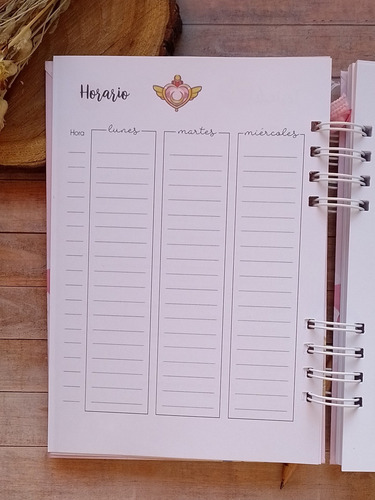 Horario
Hora lunes martes miércoles